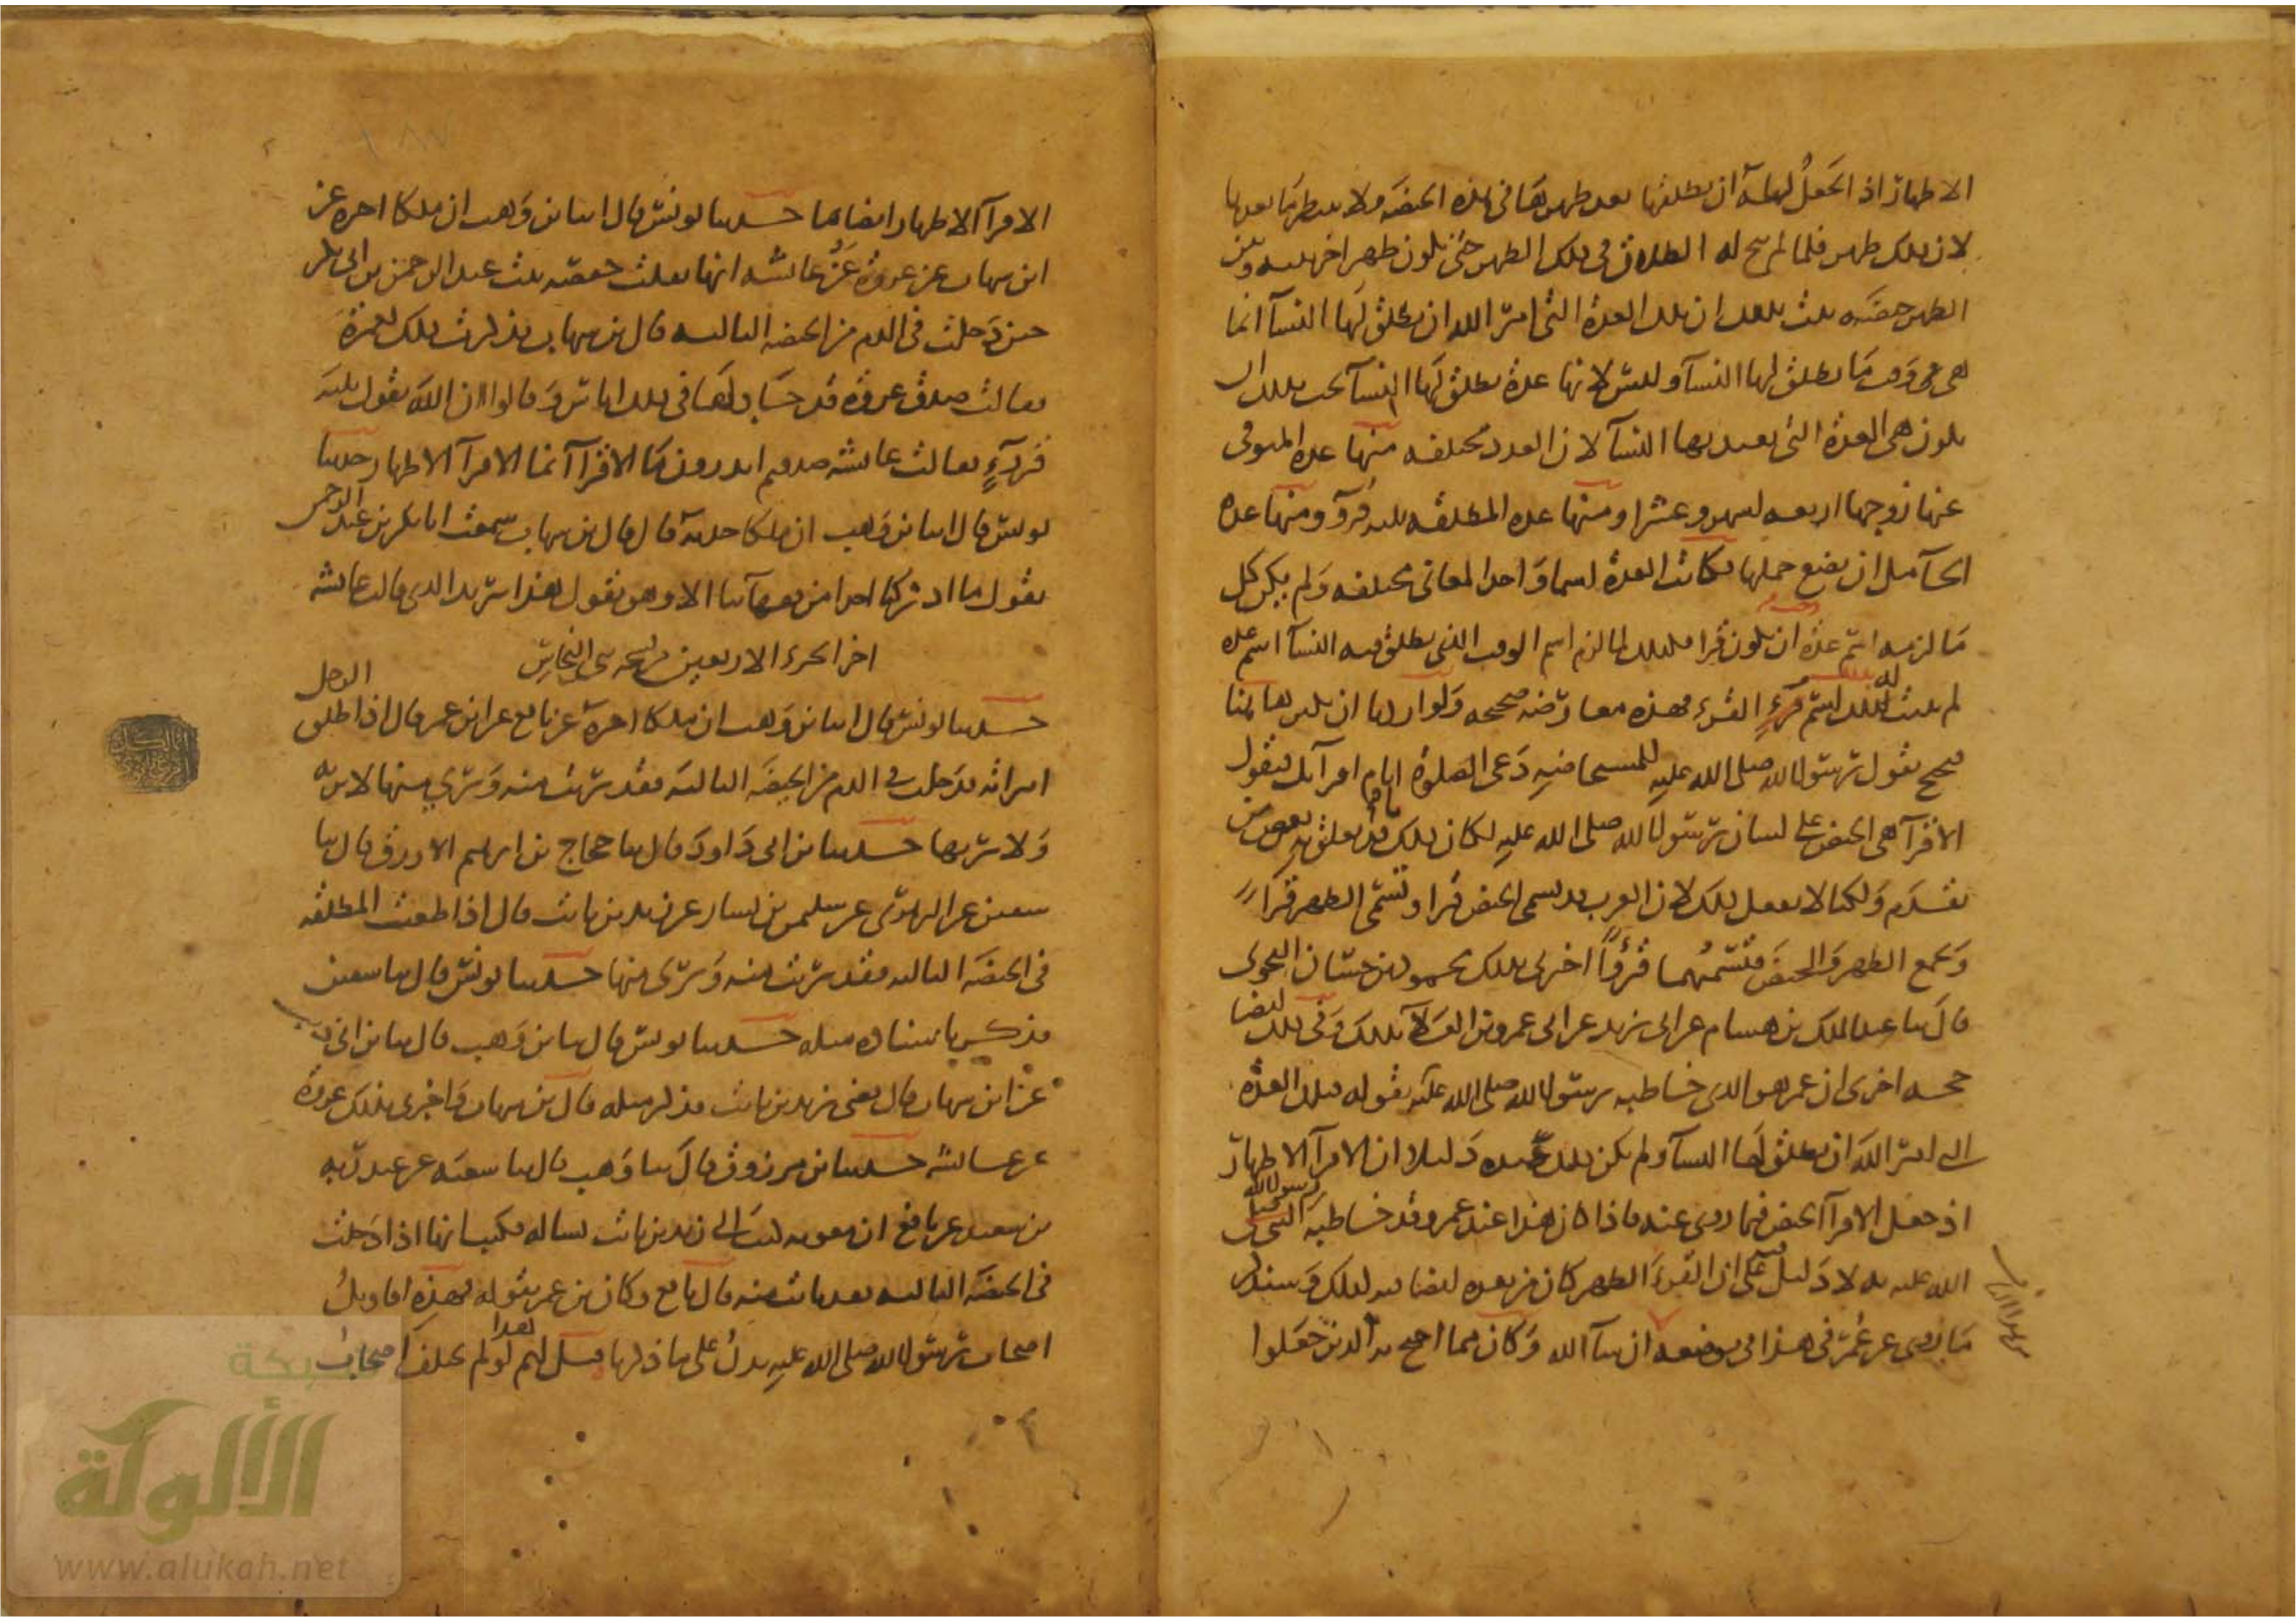 الاطهار اذ لم يجعل له ان يطلقها بعد طهرها في هذه الحيضة ولا ينتظرها بعدها
لان تلك طهر فلما لم يبح له الطلاق في ذلك الطهر حتى يكون طهرا اخر بينه وبين
الطهر حيضة ثبت بذلك ان تلك العدة التي امر الله ان يطلق لها النسآ انما
هي وقت ما يطلق لها النسآ وليس لانها عدة يطلق لها النسآ يجب بذلك ان
يكون هي العدة التي يعتد بها النسآ لان العدد مختلفه منها عدة المتوفى
عنها زوجها اربعه اشهر وعشرا ومنها عده المطلقه ثلثه قروء ومنها عده
الحآمل ان يضع حملها فكانت العدة اسما واحدا لمعانى مختلفه ولم يكن كل
ما لزمه اسم عدة ان يكون قرا فكذلك لما لزم اسم الوقت الذي يطلق فيه النسآ اسم عده
لم يثبت له بذلك اسم القرء فهذه معارضه صحيحه ولو اردنا ان نكثر هاهنا
فنحتج بقول رسول الله صلى الله عليه للمستحاضه دعى الصلوة ايام اقرآئك فنقول
الاقرآ هى الحيض على لسان رسول الله صلى الله عليه لكان ذلك قد تعلق به بعض من
تقدم ولكنا لا نفعل ذلك لان العرب قد تسمى الحيض قرا وتسمى الطهر قرا
وتجمع الطهر والحيض فتسميهما قرءًا اخبرنى بذلك محمود بن حسان النحوى
قال ثنا عبد الملك بن هشام عن ابى زيد عن ابى عمرو بن العلآ بذلك وفى ذلك ايضا
حجه اخرى ان عمر هو الذى خاطبه رسول الله صلى الله عليه بقوله فتلك العدة
التى امر الله ان يطلق لها النسآ ولم يكن ذلك عنده دليلا ان الاقرآ الاطهار
اذ جعل الاقرآ الحيض فيما روى عنه فاذا كان هذا عند عمر وقد خاطبه رسول الله صلى
الله عليه به لا دليل فيه على ان القرء الطهر كان من بعده ايضا فيه لذلك وسنذكر
ما روى عن عمر في هذا في موضعه ان شآ الله وكان مما احتج به الذين جعلوا
الاقرآ الاطهار ايضا ما حدثنا يونس قال انبا ابن وهب ان ملكا اخبره عن
ابن شهاب عن عروة عن عائشه انها نقلت حفصه بنت عبد الرحمن بن ابى بكر
حين دخلت فى الدم من الحيضه الثالثه قال ابن شهاب فذكرت ذلك لعمرة
فقالت صدق عروة قد جادلها فى ذلك اناس وقالوا ان الله يقول ثلثه
قروءٍ فقالت عائشه صدقتم اتدرون ما الاقرآ انما الاقرآ الاطهار حدثنا
يونس قال انبا ابن وهب ان ملكا حدثه قال قال ابن شهاب سمعت ابا بكر بن عبد الرحمن
يقول ما ادركنا احدا من فقهآئنا الا وهو يقول هذا يريد الذى قالت عائشه
اخر الجزء الاربعين من
حدثنا يونس قال انبا ابن وهب ان ملكا اخبره عن نافع عن ابن عمر قال اذا طلق الرجل
امراته فدخلت فى الدم من الحيضه الثالثه فقد برئت منه وبرئ منها لا ترثه
ولا يرثها حدثنا ابن ابى داود قال ثنا حجاج بن ابرهيم الازرق قال ثنا
سفين عن الزهرى عن سليمن بن يسار عن زيد بن ثابت قال اذا طعنت المطلقه
فى الحيضه الثالثه فقد برئت منه وبرئ منها حدثنا يونس قال ثنا سفين
فذكر باسناده مثله حدثنا يونس قال ثنا ابن وهب قال ثنا ابن ابى ذيب
عن ابن شهاب قال قضى زيد بن ثابت فذكر مثله قال ابن شهاب واخبرنى بذلك عروة
عن عائشه حدثنا ابن مرزوق قال ثنا وهب قال ثنا شعبه عن عبد ربه
بن سعيد عن نافع ان معويه كتب الى زيد بن ثابت يساله فكتب انها اذا دخلت
فى الحيضه الثالثه فقد بانت منه قال نافع وكان ابن عمر يقوله فهذه اقاويل
اصحاب رسول الله صلى الله عليه يدل على ما ذكرنا قيل لهم لو لم يختلف اصحاب
شبكة
الألوكة
www.alukah.net